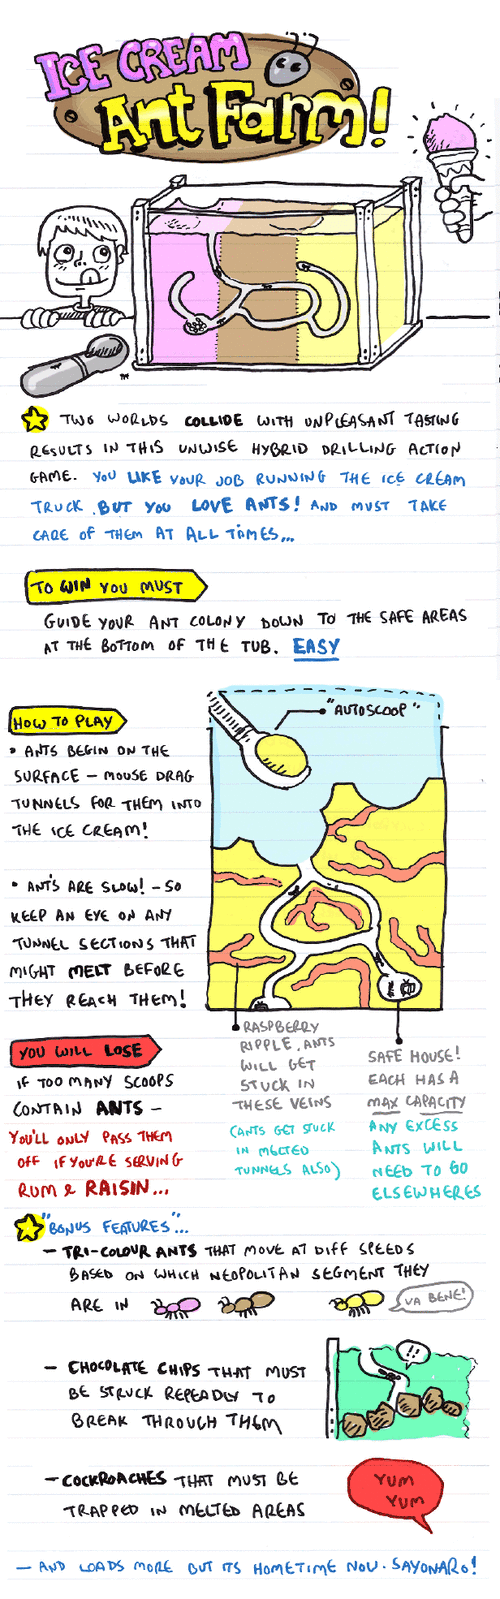 ICE CREAM
Ant Farm!
TWO WORLDS COLLIDE WITH UNPLEASANT TASTING
RESULTS IN THIS UNWISE HYBRID DRILLING ACTION
GAME. YOU LIKE YOUR JOB RUNNING THE ICE CREAM
TRUCK. BUT YOU LOVE ANTS! AND MUST TAKE
CARE OF THEM AT ALL TIMES...
TO WIN YOU MUST
GUIDE YOUR ANT COLONY DOWN TO THE SAFE AREAS
AT THE BOTTOM OF THE TUB. EASY
"AUTOSCOOP"
HOW TO PLAY
• ANTS BEGIN ON THE
SURFACE - MOUSE DRAG
TUNNELS FOR THEM INTO
THE ICE CREAM!
• ANTS ARE SLOW! - SO
KEEP AN EYE ON ANY
TUNNEL SECTIONS THAT
MIGHT MELT BEFORE
THEY REACH THEM!
YOU WILL LOSE
IF TOO MANY SCOOPS
CONTAIN ANTS -
YOU'LL ONLY PASS THEM
OFF IF YOU'RE SERVING
RUM & RAISIN...
RASPBERRY
RIPPLE. ANTS
WILL GET
STUCK IN
THESE VEINS
(ANTS GET STUCK
IN MELTED
TUNNELS ALSO)
SAFE HOUSE!
EACH HAS A
MAX CAPACITY
ANY EXCESS
ANTS WILL
NEED TO GO
ELSEWHERES
"BONUS FEATURES"...
- TRI-COLOUR ANTS THAT MOVE AT DIFF SPEEDS
BASED ON WHICH NEOPOLITAN SEGMENT THEY
ARE IN
VA BENE!
- CHOCOLATE CHIPS THAT MUST
BE STRUCK REPEADLY TO
BREAK THROUGH THEM
!!
- COCKROACHES THAT MUST BE
TRAPPED IN MELTED AREAS
YUM
YUM
- AND LOADS MORE BUT ITS HOMETIME NOW. SAYONARO!